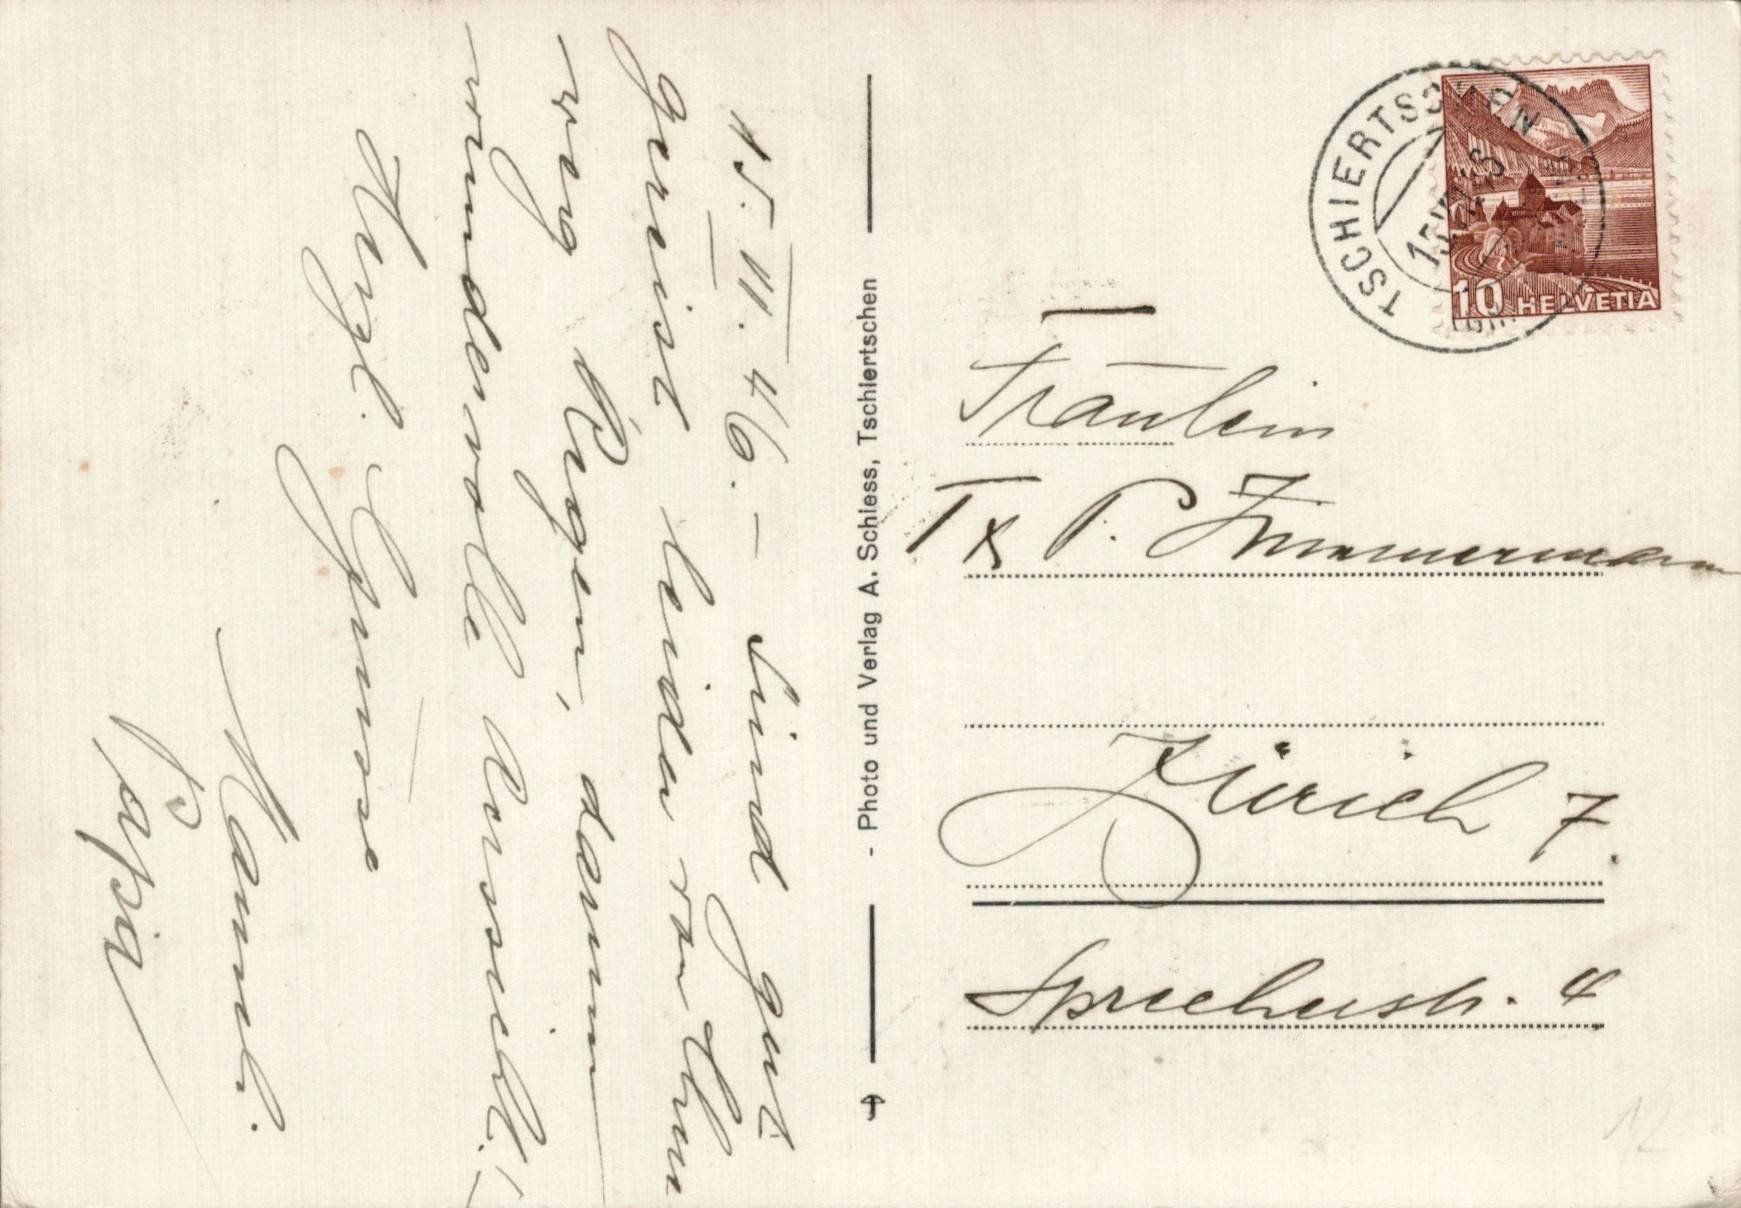 15. VI. 46. – Sind gut
gereist leider von Chur
weg Regen, darum
wundervolle Aussicht!
Herzl. Grüsse
Mamli.
Papa
- Photo und Verlag A. Schiess, Tschiertschen
TSCHIERTSCHEN
10 HELVETIA
Fräulein
P. Zimmermann
Zürich 7.
4
12